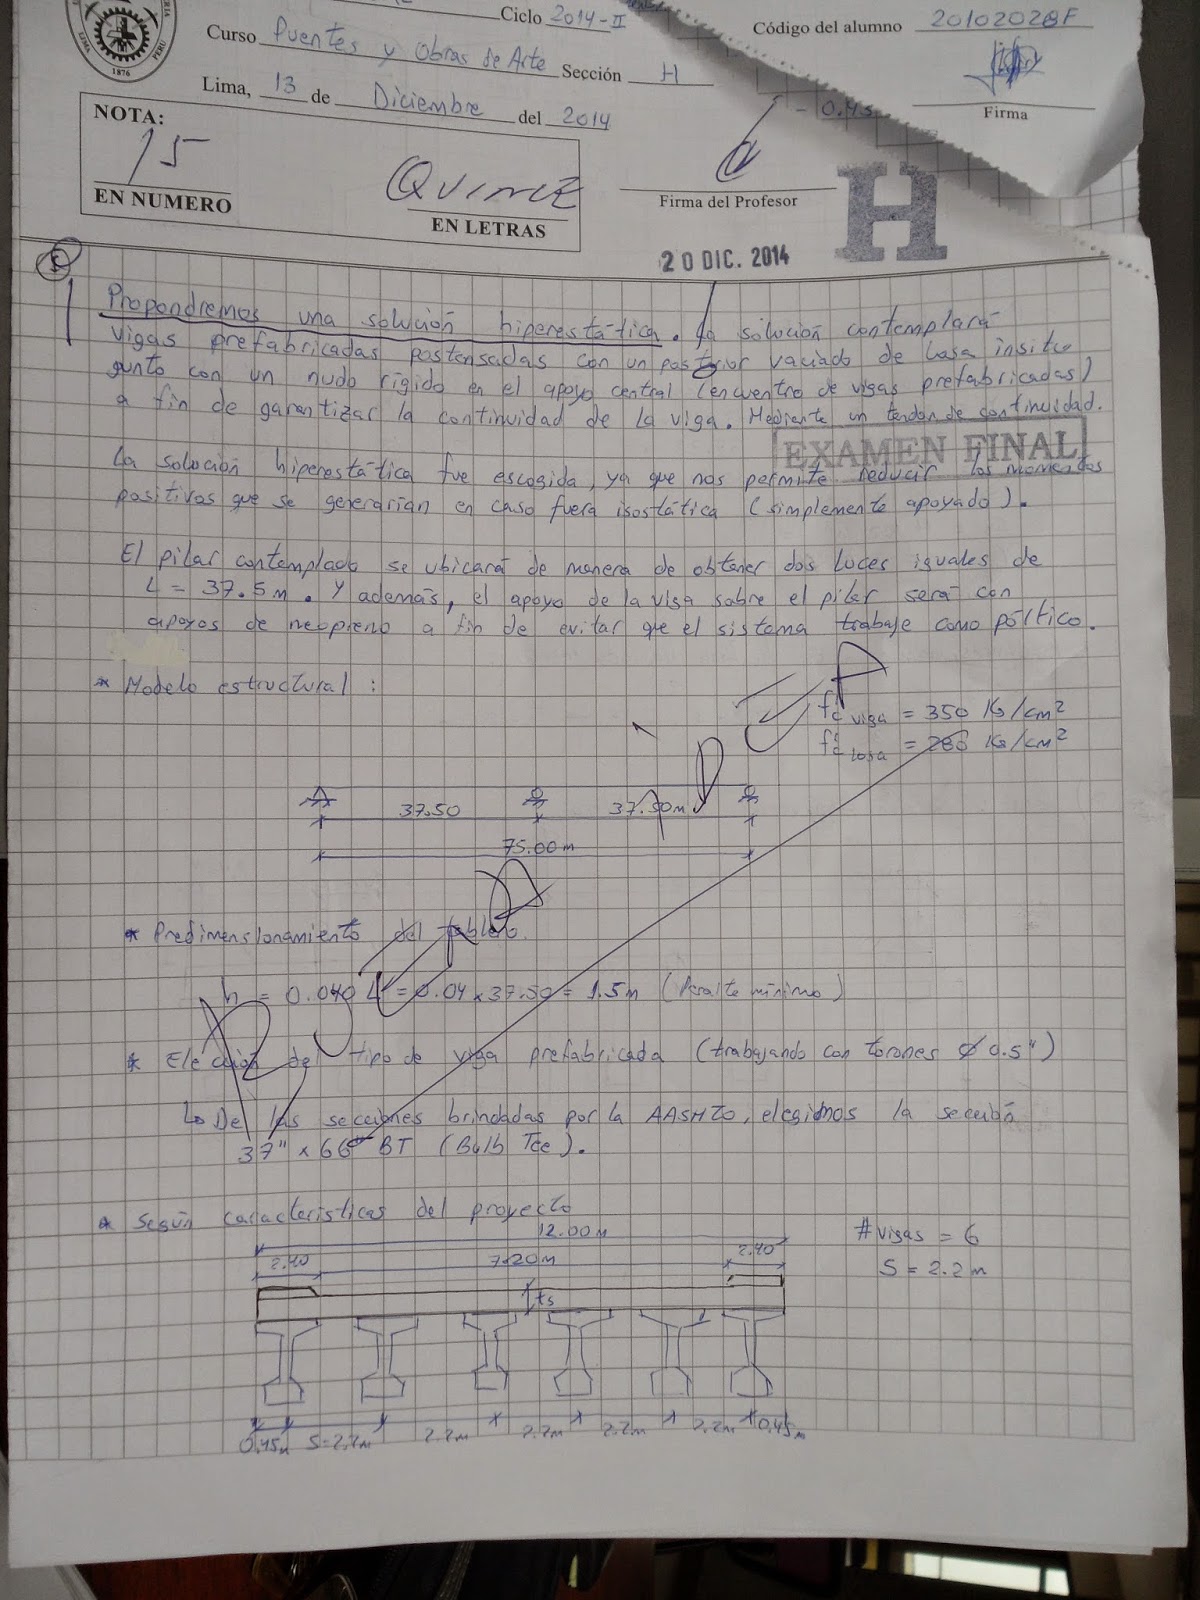 Ciclo 2014-II
Código del alumno 20102028F
Curso Puentes y Obras de Arte Sección H
Lima, 13 de Diciembre del 2014
Firma
NOTA:
15
EN NUMERO
QUINCE
EN LETRAS
Firma del Profesor
H
20 DIC. 2014
1876
LIMA
PERU
- 0.45
Propondremos una solución hiperestática. La solución contemplará
vigas prefabricadas postensadas con un posterior vaciado de losa insitu
junto con un nudo rígido en el apoyo central (encuentro de vigas prefabricadas)
a fin de garantizar la continuidad de la viga. Mediante un tendón de continuidad.
EXAMEN FINAL
La solución hiperestática fue escogida, ya que nos permite reducir los momentos
positivos que se generarían en caso fuera isostática (simplemente apoyado).
El pilar contemplado se ubicará de manera de obtener dos luces iguales de
L = 37.5m. Y además, el apoyo de la viga sobre el pilar será con
apoyos de neopreno a fin de evitar que el sistema trabaje como pórtico.
* Modelo estructural:
f'c viga = 350 Kg/cm²
f'c losa = 280 Kg/cm²
37.50 37.50m
75.00m
* Predimensionamiento del tablero.
h = 0.040 L = 0.04 x 37.50 = 1.5m (Peralte mínimo)
* Elección del tipo de viga prefabricada (trabajando con torones Ø 0.5")
↳ De las secciones brindadas por la AASHTO, elegimos la sección
37" x 66" BT (Bulb Tee).
* Según características del proyecto
12.00m
2.40 7.20m 2.40
# vigas = 6
S = 2.2m
ts
0.45m S=2.2m 2.2m 2.2m 2.2m 2.2m 0.45m